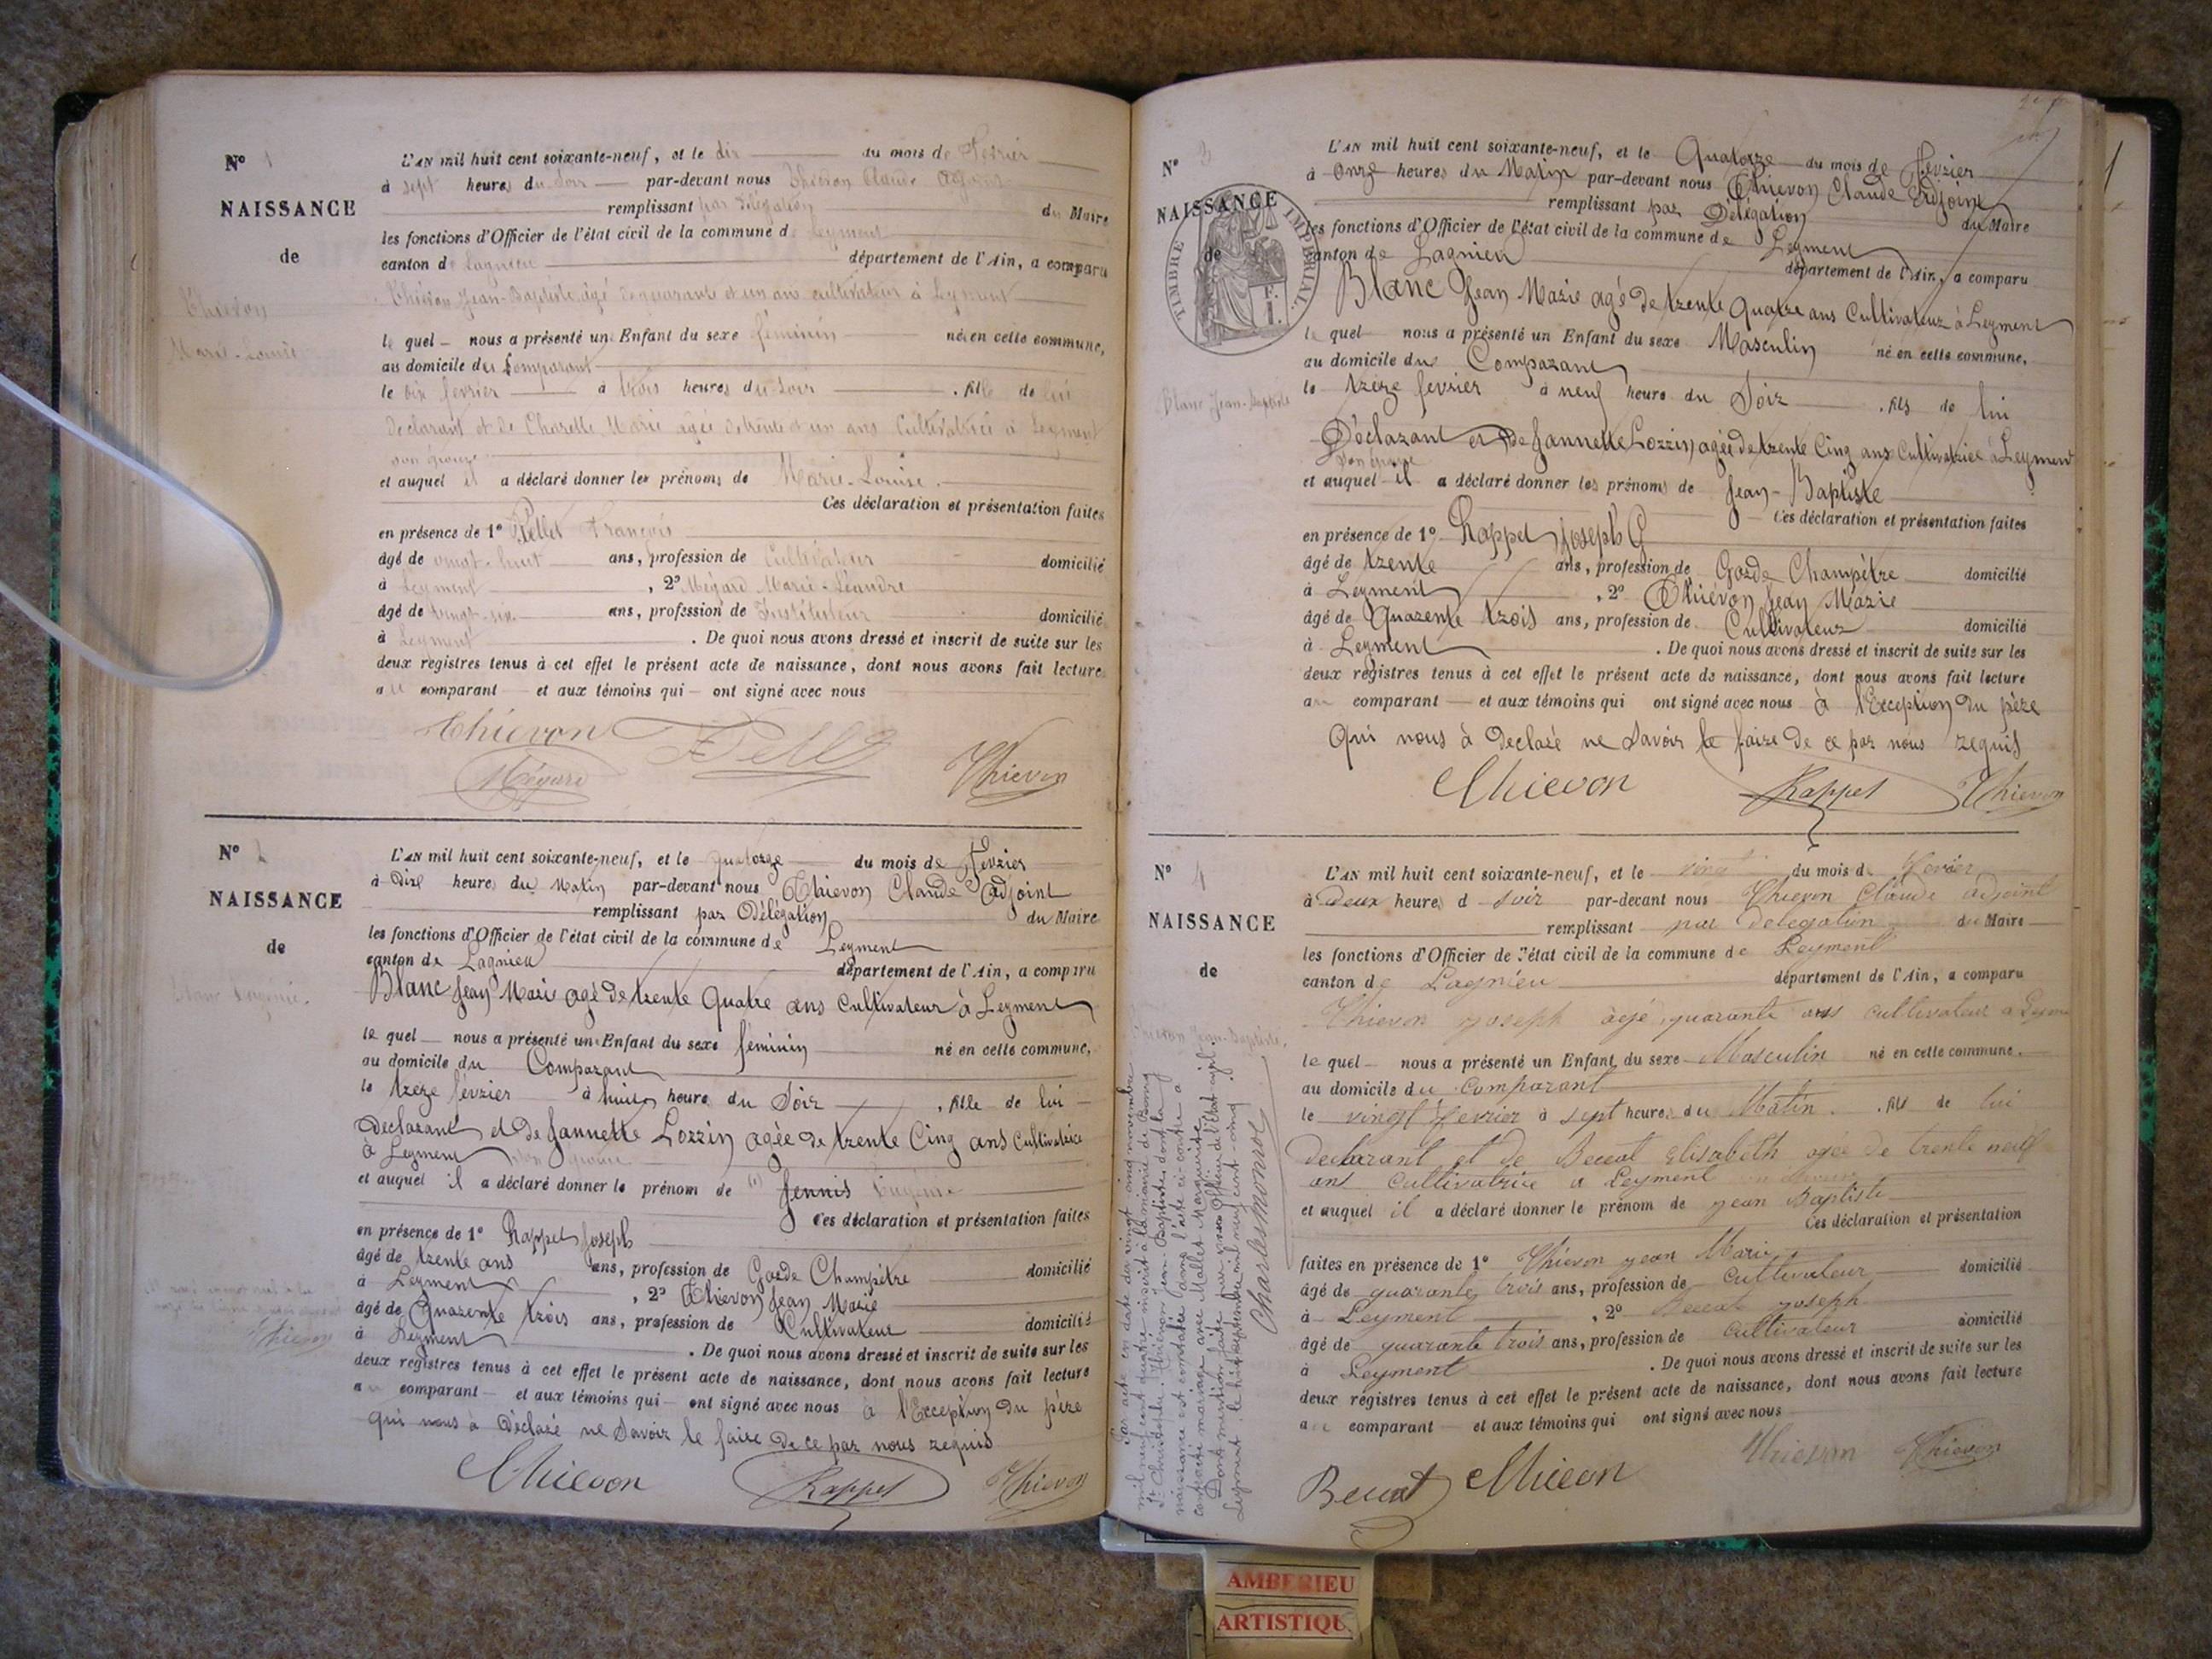 N° 1
NAISSANCE
de
Thievon
Marie-Louise
L'AN mil huit cent soixante-neuf, et le dix du mois de Fevrier
à sept heures du soir par-devant nous Thievon Claude adjoint
remplissant par délégation du Maire
les fonctions d'Officier de l'état civil de la commune de Leyment
canton de Lagnieu département de l'Ain, a comparu
Thiévon Jean-Baptiste, âgé de quarante et un ans cultivateur à Leyment
le quel nous a présenté un Enfant du sexe féminin né en cette commune,
au domicile du Comparant
le dix fevrier à trois heures du soir . fille de lui
Déclarant et de Charelle Marie agée de trente et un ans Cultivatrice à Leyment
son épouse
et auquel il a déclaré donner les prénoms de Marie-Louise.
Ces déclaration et présentation faites
en présence de 1° Pellet François
âgé de vingt-huit ans, profession de Cultivateur domicilié
à Leyment , 2° Mégard Marie-Léandre
âgé de vingt-six ans, profession de Instituteur domicilié
à Leyment . De quoi nous avons dressé et inscrit de suite sur les
deux registres tenus à cet effet le présent acte de naissance, dont nous avons fait lecture
au comparant et aux témoins qui ont signé avec nous
Thievon Pellet
Mégard Thievon
N° 2
NAISSANCE
de
Blanc Eugénie.
L'AN mil huit cent soixante-neuf, et le quatorze du mois de Fevrier
à Dix heures du Matin par-devant nous Thievon Claude Adjoint
remplissant par Délégation du Maire
les fonctions d'Officier de l'état civil de la commune de Leyment
canton de Lagnieu département de l'Ain, a comparu
Blanc Jean Marie agé de trente Quatre ans Cultivateur à Leyment
le quel nous a présenté un Enfant du sexe féminin né en cette commune,
au domicile du Comparant
le treze février à huit heure du Soir , fille de lui
Declarant et de Jannette Lorrin agée de trente Cinq ans Cultivatrice
à Leyment son épouse
et auquel il a déclaré donner le prénom de (1) Jennis Eugénie
Ces déclaration et présentation faites
en présence de 1° Rappet Joseph
âgé de trente ans ans, profession de Garde Champêtre domicilié
à Leyment , 2° Thievon Jean Marie
âgé de Quarente trois ans, profession de Cultivateur domicilié
à Leyment . De quoi nous avons dressé et inscrit de suite sur les
deux registres tenus à cet effet le présent acte de naissance, dont nous avons fait lecture
au comparant et aux témoins qui ont signé avec nous à l'Exception du père
qui nous à Déclaré ne Savoir le faire de ce par nous requis
Thievon
Thievon Rappet Thievon
N° 3
NAISSANCE
de
TIMBRE IMPERIAL.
1 F.
Blanc Jean-Baptiste
L'AN mil huit cent soixante-neuf, et le Quatorze du mois de fevrier
à Onze heures du Matin par-devant nous Thievon Claude Adjoint
remplissant par Délégation du Maire
les fonctions d'Officier de l'état civil de la commune de Leyment
canton de Lagnieu département de l'Ain, a comparu
Blanc Jean Marie agé de trente Quatre ans Cultivateur à Leyment
le quel nous a présenté un Enfant du sexe Masculin né en cette commune,
au domicile du Comparant
le treze fevrier à neuf heure du Soir . fils de lui
Déclarant et de Jannette Lorrin agée de trente Cinq ans Cultivatrice à Leyment
son épouse
et auquel il a déclaré donner les prénoms de Jean-Baptiste
Ces déclaration et présentation faites
en présence de 1° Rappet Joseph
âgé de trente ans, profession de Garde Champêtre domicilié
à Leyment , 2° Thiévon Jean Marie
âgé de Quarente trois ans, profession de Cultivateur domicilié
à Leyment . De quoi nous avons dressé et inscrit de suite sur les
deux registres tenus à cet effet le présent acte de naissance, dont nous avons fait lecture
au comparant et aux témoins qui ont signé avec nous à l'Exception du père
Qui nous à déclaré ne Savoir le faire de ce par nous requis
Thievon Rappet Thievon
N° 4
NAISSANCE
de
Thievon Jean-Baptiste.
Par acte en date du vingt cinq novembre
mil neuf cent quatre inscrit à la mairie de Bourg
St Christophe. Thiévon Jean-Baptiste dont la
naissance est constatée dans l'acte ci-contre a
contracté mariage avec Mallet Marguerite
Dont mention faite par nous Officier de l'état civil
Leyment, le huit septembre mil neuf cent cinq
Charlesmonroe
L'AN mil huit cent soixante-neuf, et le vingt du mois de fevrier
à Deux heures d soir par-devant nous Thievon Claude adjoint
remplissant par delegation du Maire
les fonctions d'Officier de l'état civil de la commune de Leyment
canton de Lagnieu département de l'Ain, a comparu
Thievon joseph agé quarante ans cultivateur a Leyment
le quel nous a présenté un Enfant du sexe Masculin né en cette commune.
au domicile du Comparant
le vingt fevrier à sept heures du Matin . fils de lui
declarant et de Beccat Elisabeth agee de trente neuf
ans Cultivatrice a Leyment
et auquel il a déclaré donner le prénom de jean Baptiste
Ces déclaration et présentation
faites en présence de 1° Thiévon jean Marie
âgé de quarante trois ans, profession de cultivateur domicilié
à Leyment , 2° Beccat joseph
âgé de quarante trois ans, profession de cultivateur domicilié
à Leyment . De quoi nous avons dressé et inscrit de suite sur les
deux registres tenus à cet effet le présent acte de naissance, dont nous avons fait lecture
au comparant et aux témoins qui ont signé avec nous
Thievon Thievon
Beccat Thievon
AMBERIEU
ARTISTIQUE